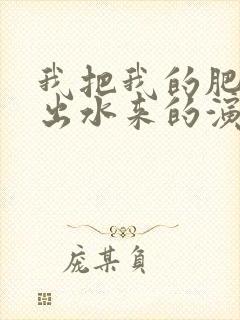 我把我的肥
出水来的演
庞某负